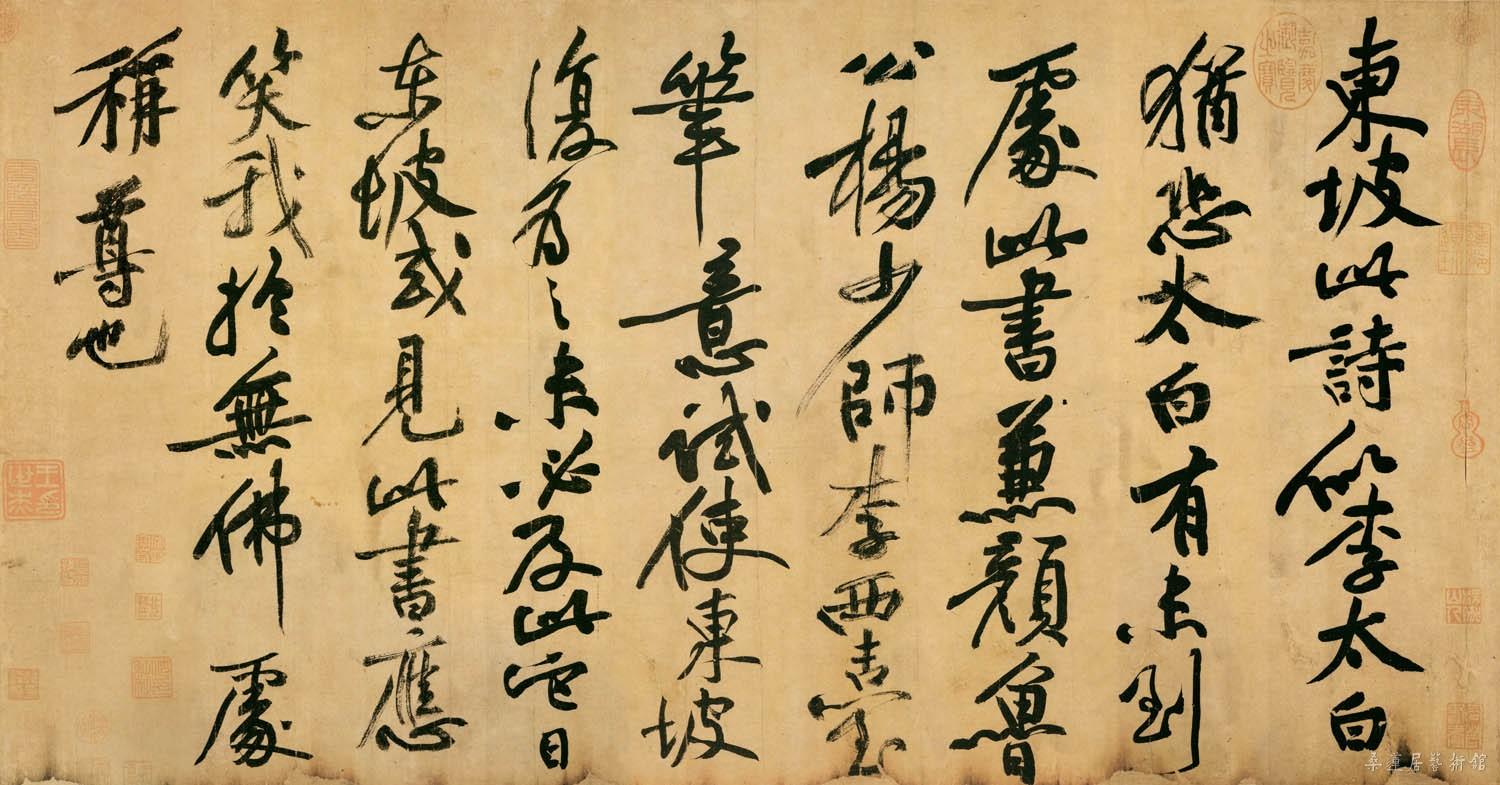 東坡此詩似李太白
猶恐太白有未到
處此書兼顏魯
公楊少師李西臺
筆意試使東坡
復為之未必及此它日
東坡或見此書應
笑我於無佛處
稱尊也
嘉慶御覽之寶
桑蓮居藝術館